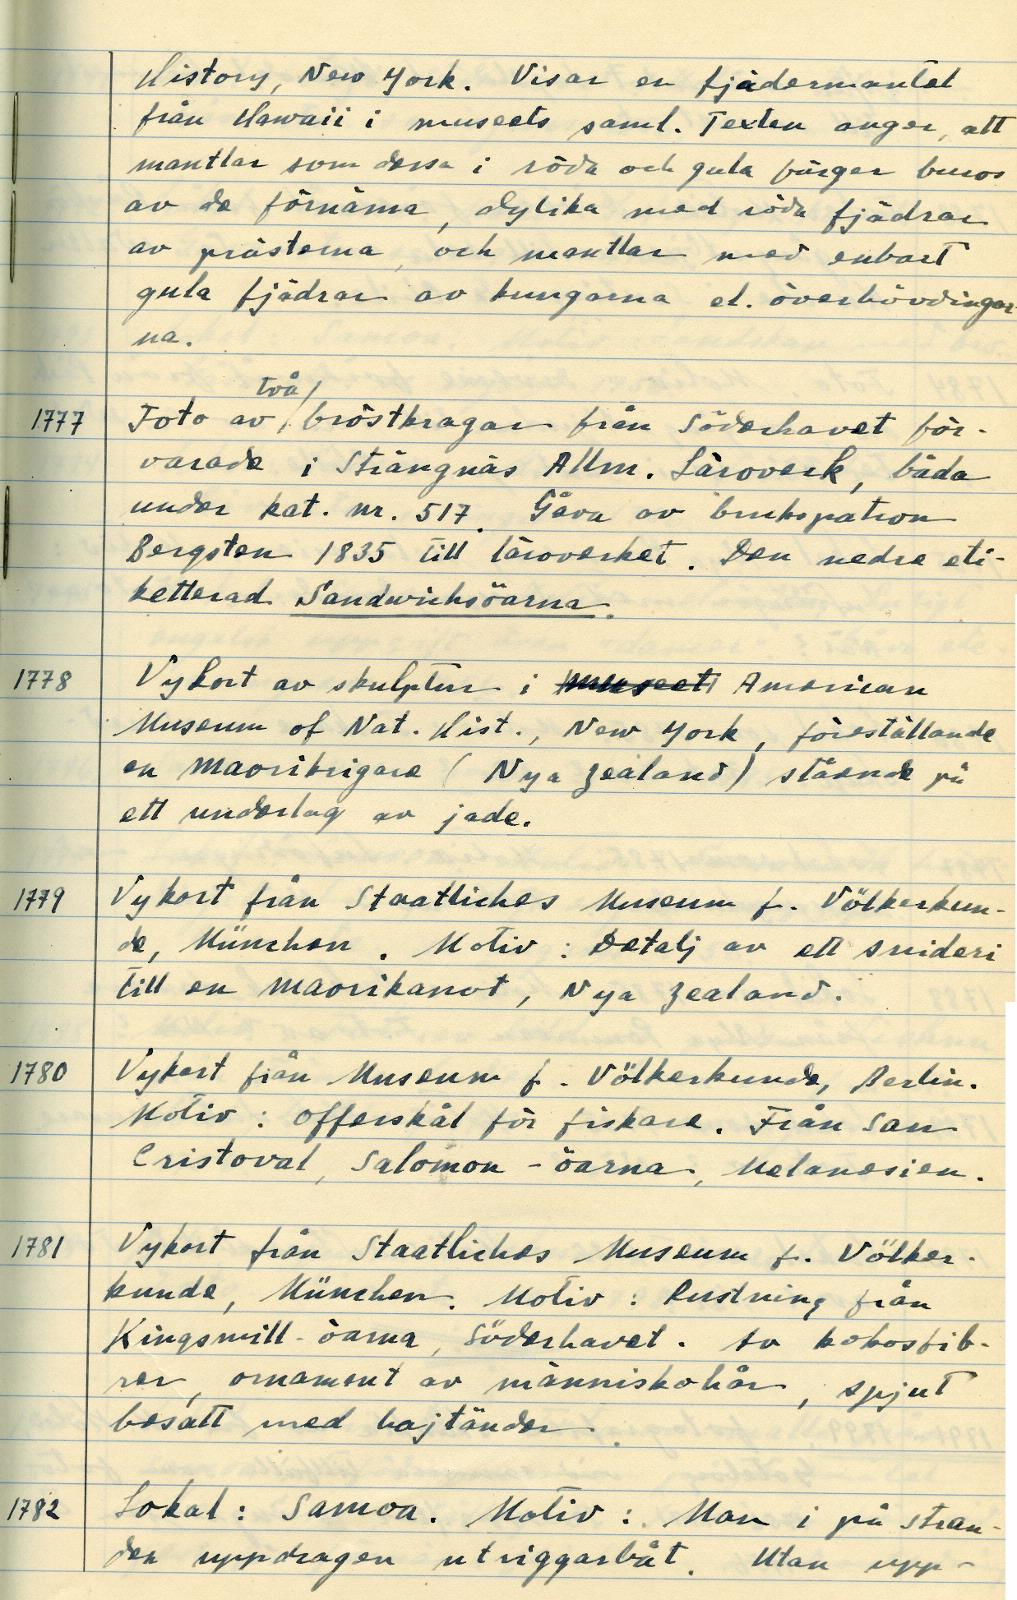 History, New York. Visar en fjädermantel
från Hawaii i museets saml. Texten anger, att
mantlar som dessa i röda och gula färger buros
av de förnäma, dylika med röda fjädrar
av prästerna, och mantlar med enbart
gula fjädrar av kungarna el. överhövdingar-
na.
två
1777 Foto av bröstkragar från Söderhavet för-
varade i Strängnäs Allm. Läroverk, båda
under kat. nr. 517. Gåva av brukspatron
Bergsten 1835 till läroverket. Den nedre eti-
ketterad Sandwichsöarna.
1778 Vykort av skulptur i museet American
Museum of Nat. Hist., New York, föreställande
en maorikrigare (Nya Zealand) stående på
ett underlag av jade.
1779 Vykort från Staatliches Museum f. Völkerkun-
de, München. Motiv: Detalj av ett snideri
till en maorikanot, Nya Zealand.
1780 Vykort från Museum f. Völkerkunde, Berlin.
Motiv: Offerskål för fiskare. Från San
Cristoval, Salomon-öarna, Melanesien.
1781 Vykort från Staatliches Museum f. Völker-
kunde, München. Motiv: Rustning från
Kingsmill-öarna, Söderhavet. Av kokosfib-
rer, ornament av människohår, spjut
besatt med hajtänder.
1782 Lokal: Samoa. Motiv: Man i på stran-
den uppdragen utriggarbåt. Utan upp-